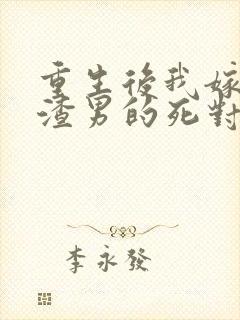 重生後我嫁
渣男的死對
李永發